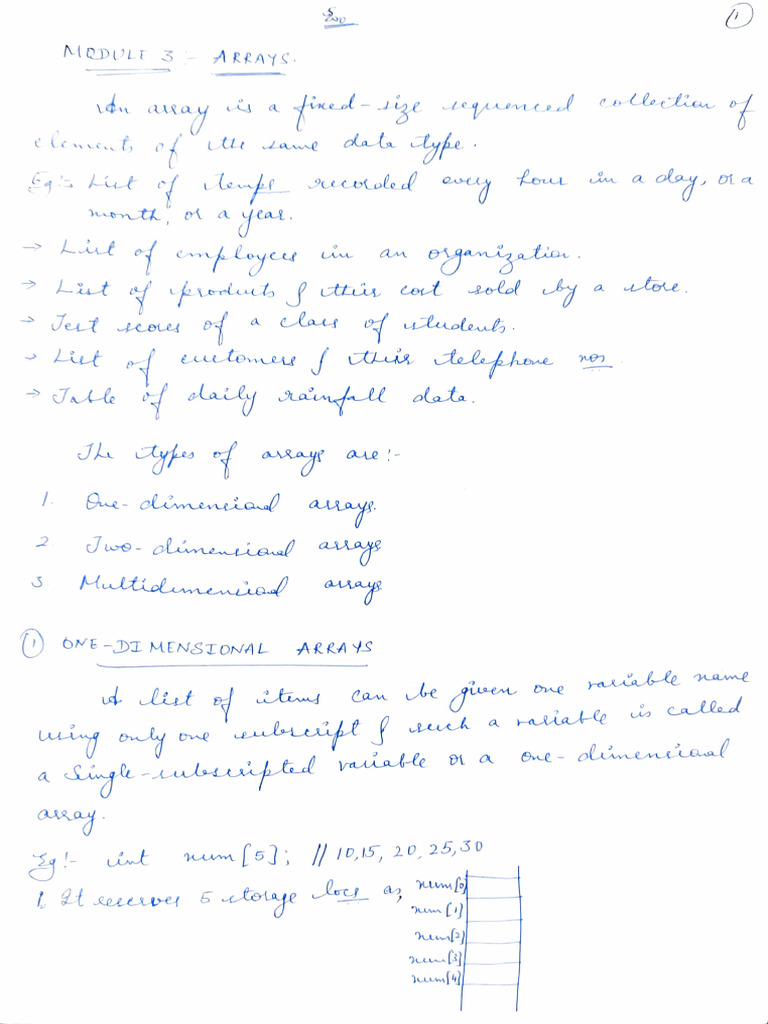 1
MODULE 3 :- ARRAYS.
An array is a fixed-size sequenced collection of
elements of the same data type.
Eg:- List of temps recorded every hour in a day, or a
month, or a year.
→ List of employees in an organization.
→ List of products & their cost sold by a store.
→ Test scores of a class of students.
→ List of customers & their telephone nos.
→ Table of daily rainfall data.
The types of arrays are:-
1. One-dimensional arrays.
2 Two-dimensional arrays
3 Multidimensional arrays
1 ONE-DIMENSIONAL ARRAYS
A list of items can be given one variable name
using only one subscript & such a variable is called
a single-subscripted variable or a one-dimensional
array.
Eg:- int num[5]; // 10,15, 20, 25,30
1. It reserves 5 storage locs as,
num[0]
num[1]
num[2]
num[3]
num[4]